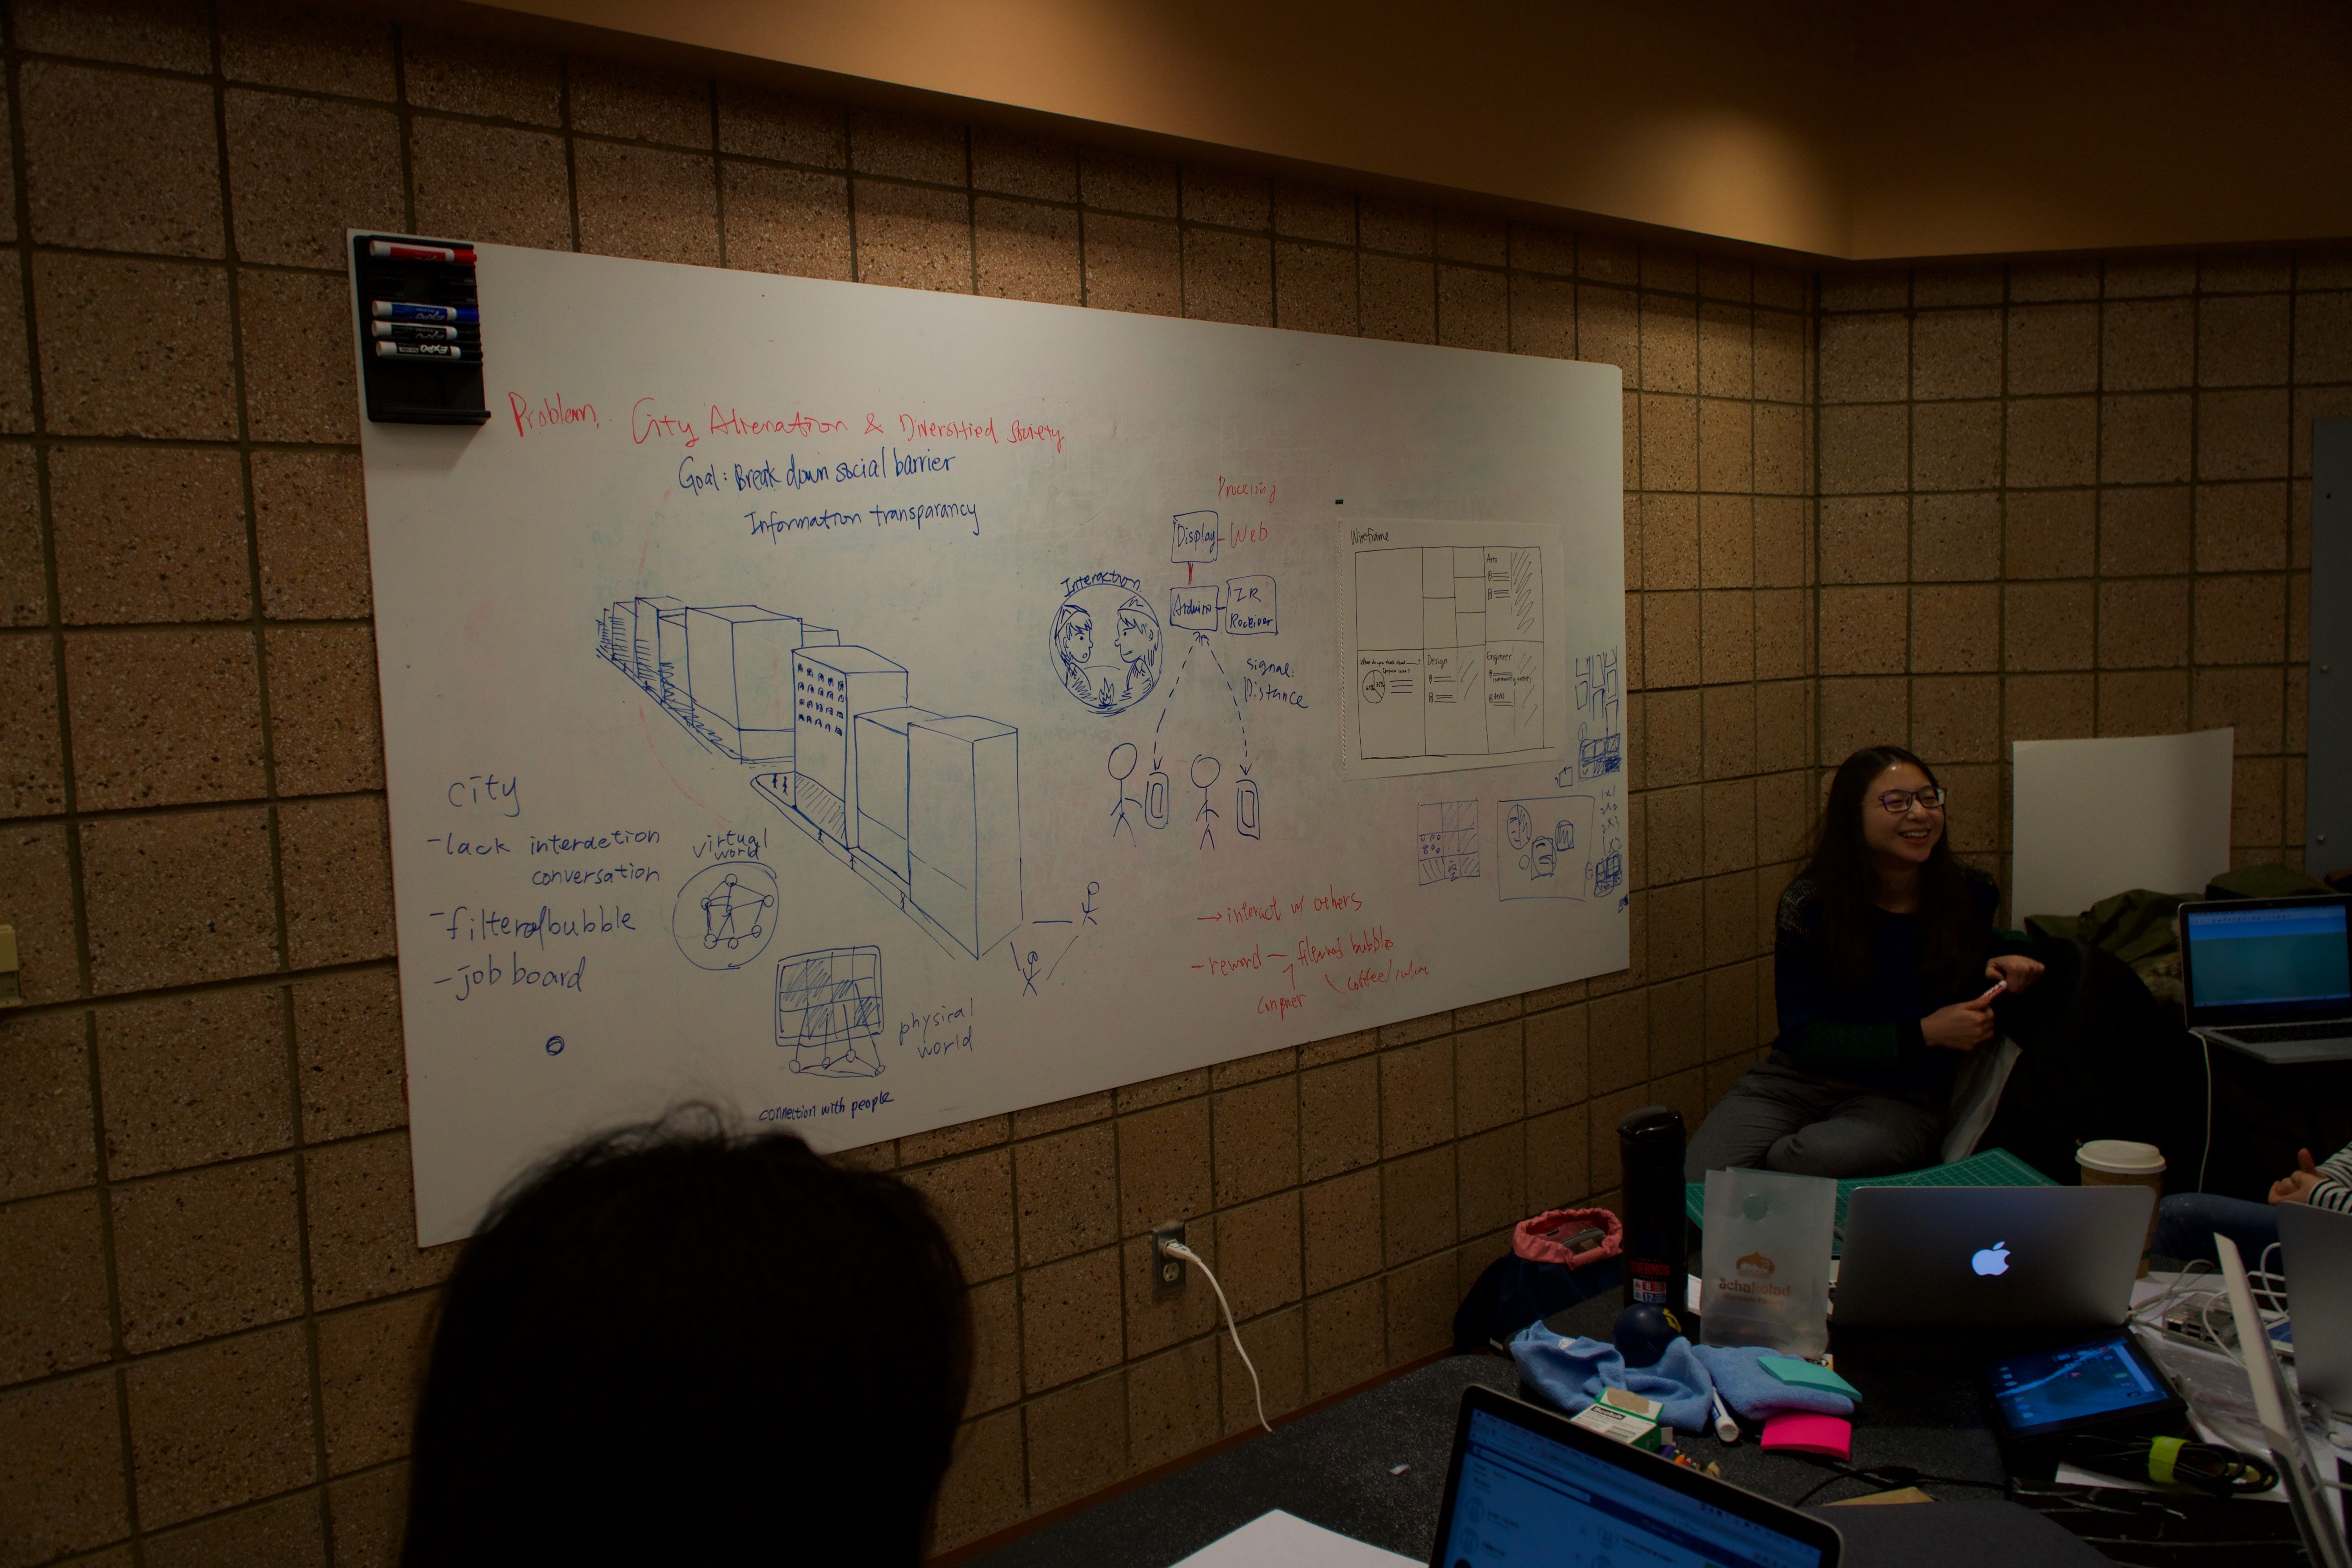 EXPO
Problem. City Alienation & Diversified Society
Goal: Break down social barrier
Information transparancy
Processing
Display - Web
Interaction
Arduino
IR
Receiver
signal:
Distance
Wireframe
Arts
Design
Engineer
city
- lack interaction
conversation
- filter of bubble
- job board
virtual
world
physical
world
connection with people
→ interact w/ others
- reward - filtered bubbles
conquer
coffee/
THERMOS
Schakolad